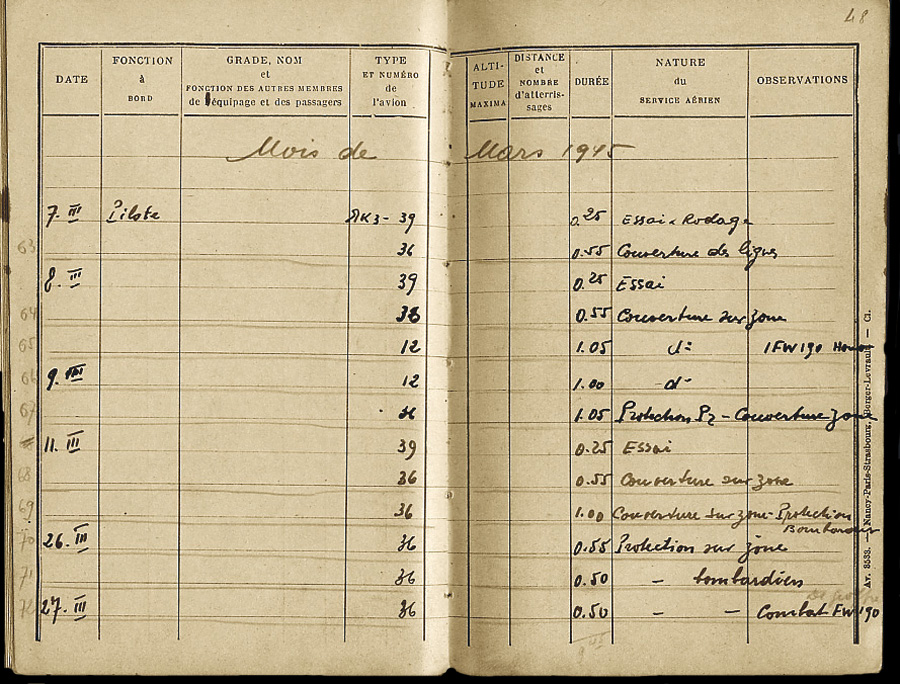 48
DATE
FONCTION
à
BORD
GRADE, NOM
et
FONCTION DES AUTRES MEMBRES
de l'équipage et des passagers
TYPE
ET NUMÉRO
de
l'avion
ALTI-
TUDE
MAXIMA
DISTANCE
et
NOMBRE
d'atterris-
sages
DURÉE
NATURE
du
SERVICE AÉRIEN
OBSERVATIONS
Mois de Mars 1945
7. III Pilote YAK3- 39 0.25 Essai - Rodage
63 36 0.55 Couverture des lignes
8. III 39 0.25 Essai
64 36 0.55 Couverture sur zone
65 12 1.05 d° 1 FW190
66 9. III 12 1.00 d°
67 36 1.05 Protection P2 - Couverture zone
11. III 39 0.25 Essai
68 36 0.55 Couverture sur zone
69 36 1.00 Couverture sur zone - Protection
Bombardiers
70 26. III 36 0.55 Protection sur zone
71 36 0.50 - bombardiers
72 27. III 36 0.50 - - Combat FW190
9 45
Av. 8533. — Nancy-Paris-Strasbourg, Berger-Levrault — Cl.